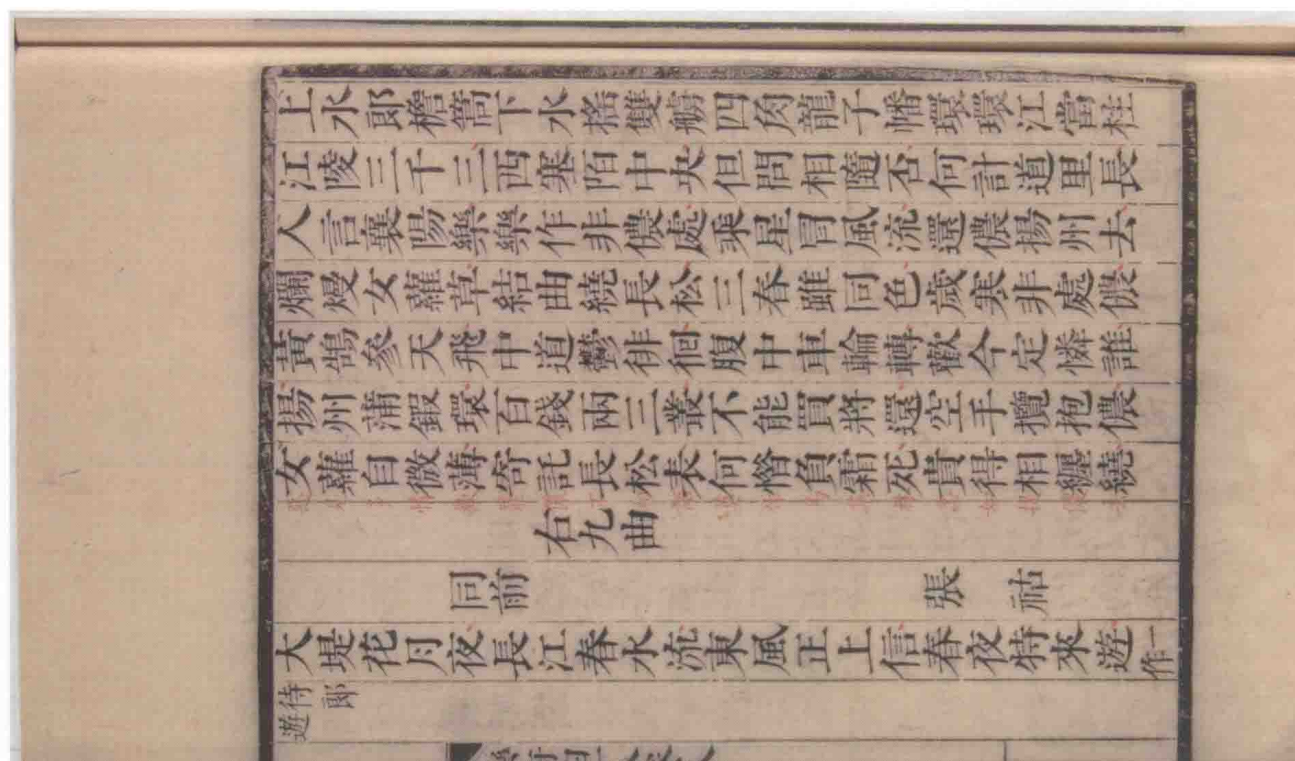 上水郎檐篙下水搖雙艣四角龍子幡環環江當柱
江陵三千三西塞陌中央但問相隨否何計道里長
人言襄陽樂樂作非儂處乘星冒風流還儂揚州去
爛熳女蘿草結曲繞長松三春雖同色歲寒非處儂
黃鵠參天飛中道鬱徘徊腹中車輪轉歡今定憐誰
揚州蒲鍜環百錢兩三叢不能買將還空手攬抱儂
女蘿自微薄寄託長松表何惜負霜死貴得相纏繞
右九曲
同前 張祜
大堤花月夜長江春水流東風正上信春夜特來遊一作
侍郎
遊